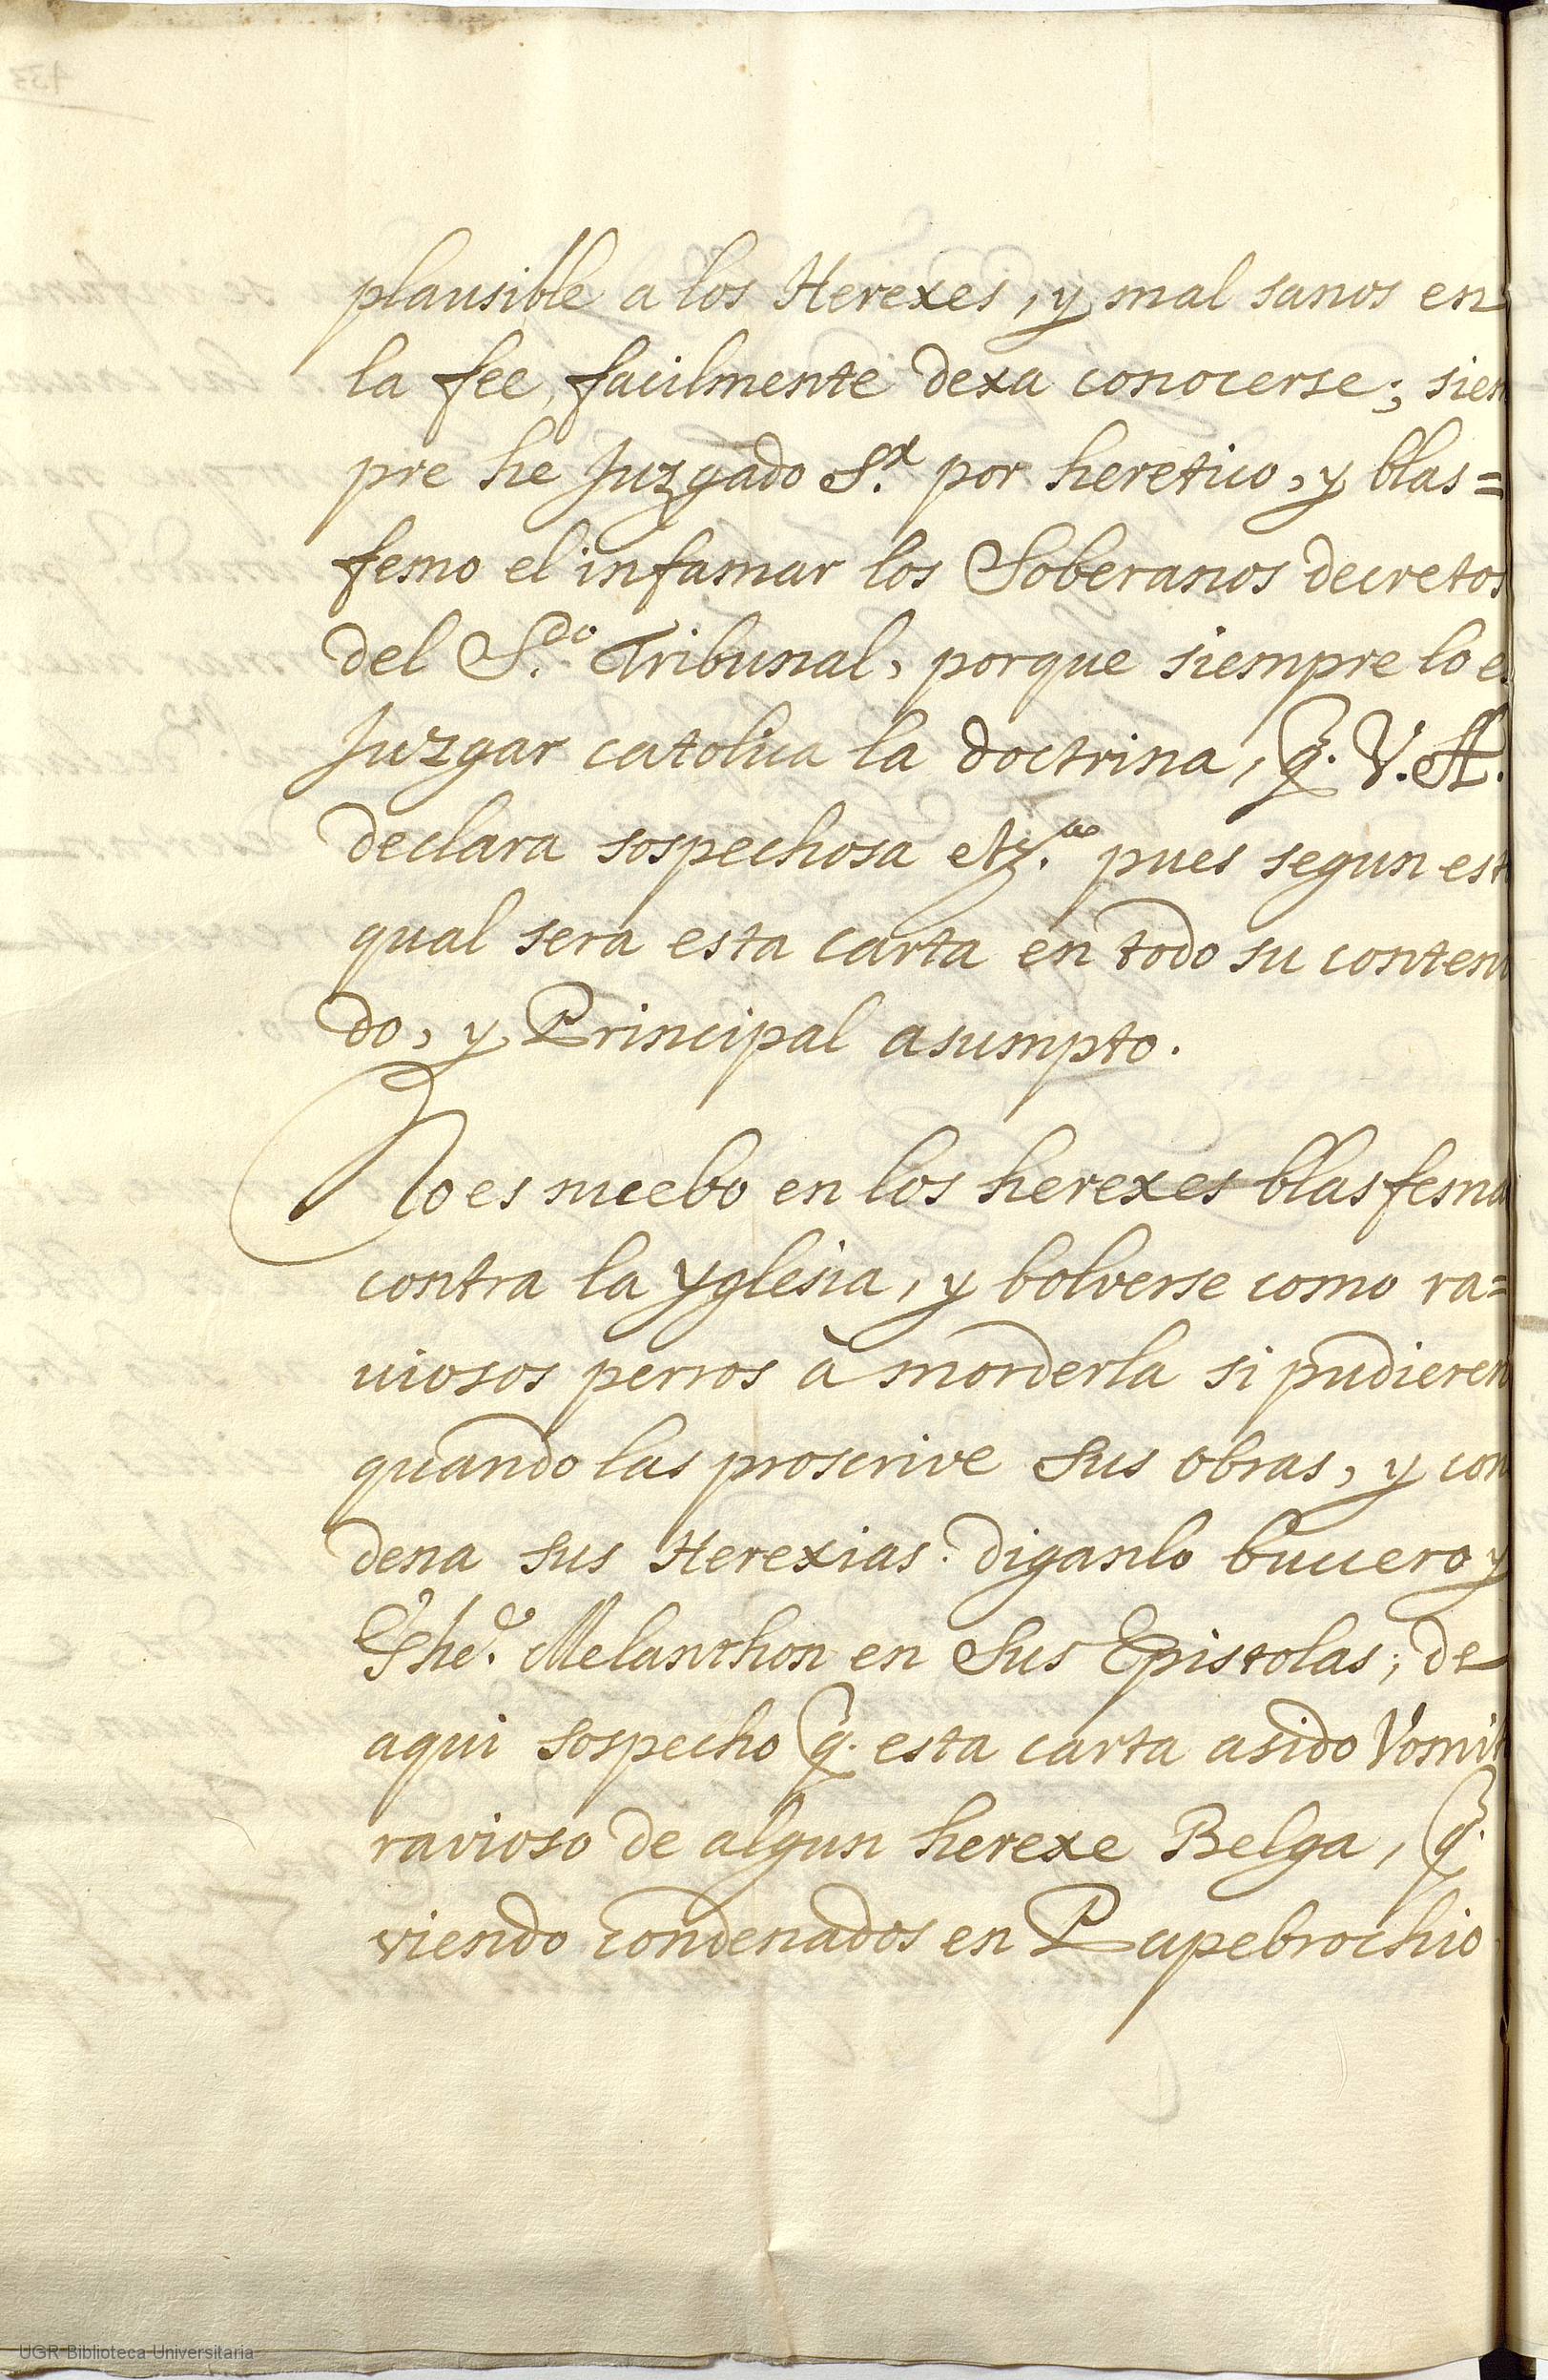 plausible a los Herexes, y mal sanos en
la fee, facilmente dexa conocerse; sien
pre he Juzgado S.r por heretico, y blas=
femo el infamar los Soberanos decretos
del S.do Tribunal, porque siempre lo e
Juzgar catolica la doctrina, q. V. A.
declara sospechosa etz.ca pues segun est
qual sera esta carta en todo su conten
do, y Principal asumpto.
No es nuebo en los herexes blasfema
contra la Yglesia, y bolverse como ra=
uiosos perros à morderla si pudieren
quando las proscrive sus obras, y con
dena sus Herexias. diganlo bucero y
Phe. Melanthon en sus Epistolas; de
aqui sospecho q. esta carta asido Vomit
ravioso de algun herexe Belga, q.
viendo condenados en Papebrochio
UGR Biblioteca Universitaria